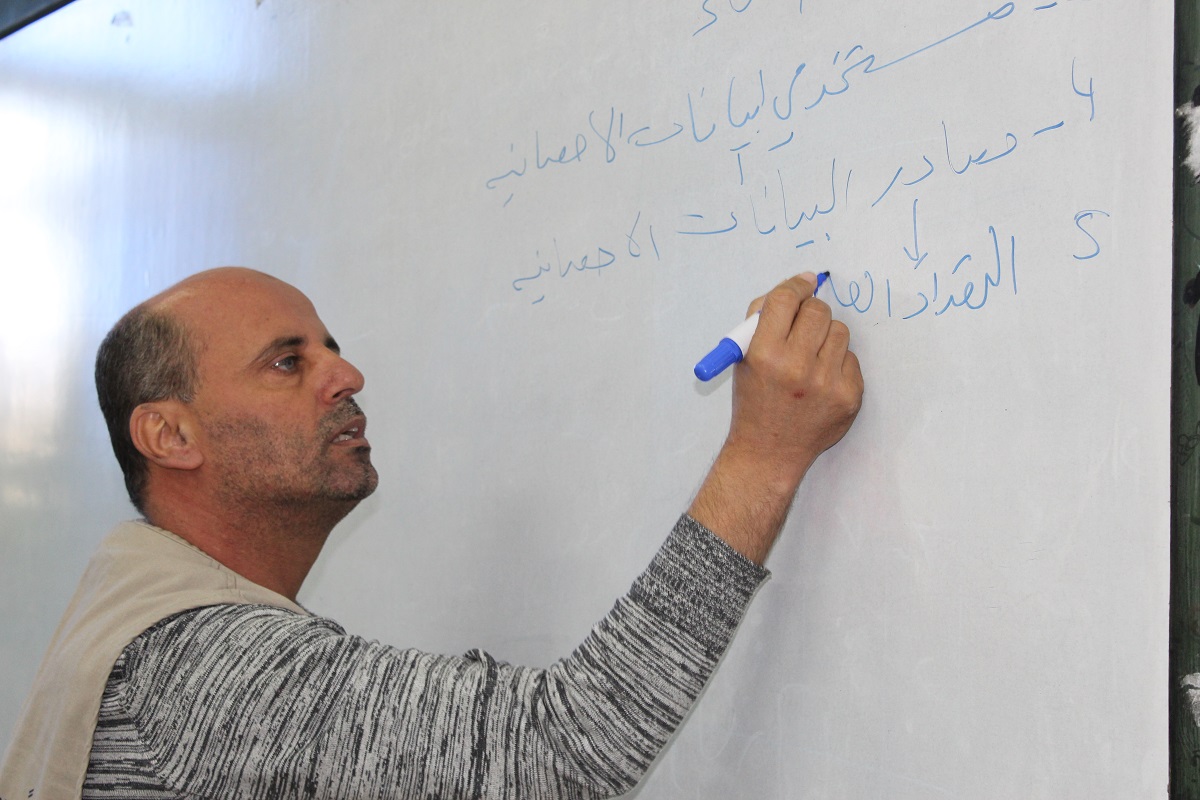 - مستخدمي البيانات الاحصائيه
٤ - مصادر البيانات الاحصائيه
التعداد العا